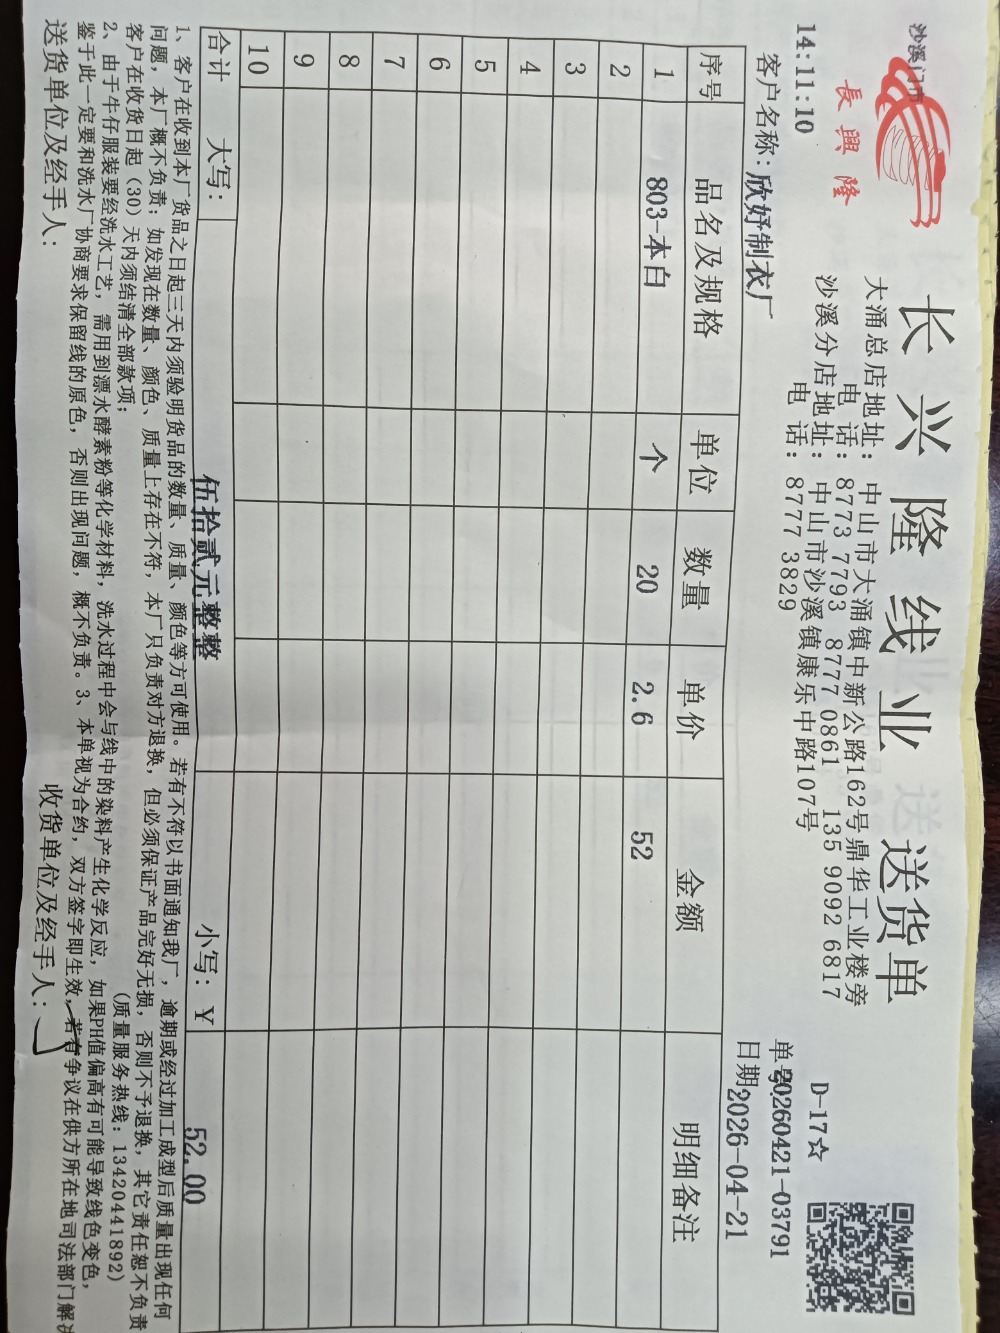 沙溪门市
長興隆
14:11:10
长兴隆线业 送货单
大涌总店地址: 中山市大涌镇中新公路162号鼎华工业楼旁
电 话: 8773 7793 8777 0861 135 9092 6817
沙溪分店地址: 中山市沙溪镇康乐中路107号
电 话: 8777 3829
D-17☆
单号:20260421-03791
客户名称:欣妤制衣厂
日期:2026-04-21
序号 品名及规格 单位 数量 单价 金额 明细备注
1 803-本白 个 20 2.6 52
2
3
4
5
6
7
8
9
10
合计 大写: 伍拾贰元整整 小写: ¥ 52.00
1、客户在收到本厂货品之日起三天内须验明货品的数量、质量、颜色等方可使用。若有不符以书面通知我厂，逾期或经过加工成型后质量出现任何
问题，本厂概不负责；如发现在数量、颜色、质量上存在不符，本厂只负责对方退换，但必须保证产品完好无损，否则不予退换，其它责任恕不负责
客户在收货日起（30）天内须结清全部款项；
(质量服务热线: 13420441892)
2、由于牛仔服装要经洗水工艺，需用到漂水酵素粉等化学材料，洗水过程中会与线中的染料产生化学反应，如果PH值偏高有可能导致线色变色，
鉴于此一定要和洗水厂协商要求保留线的原色，否则出现问题，概不负责。3、本单视为合约，双方签字即生效，若有争议在供方所在地司法部门解决
送货单位及经手人:
收货单位及经手人: